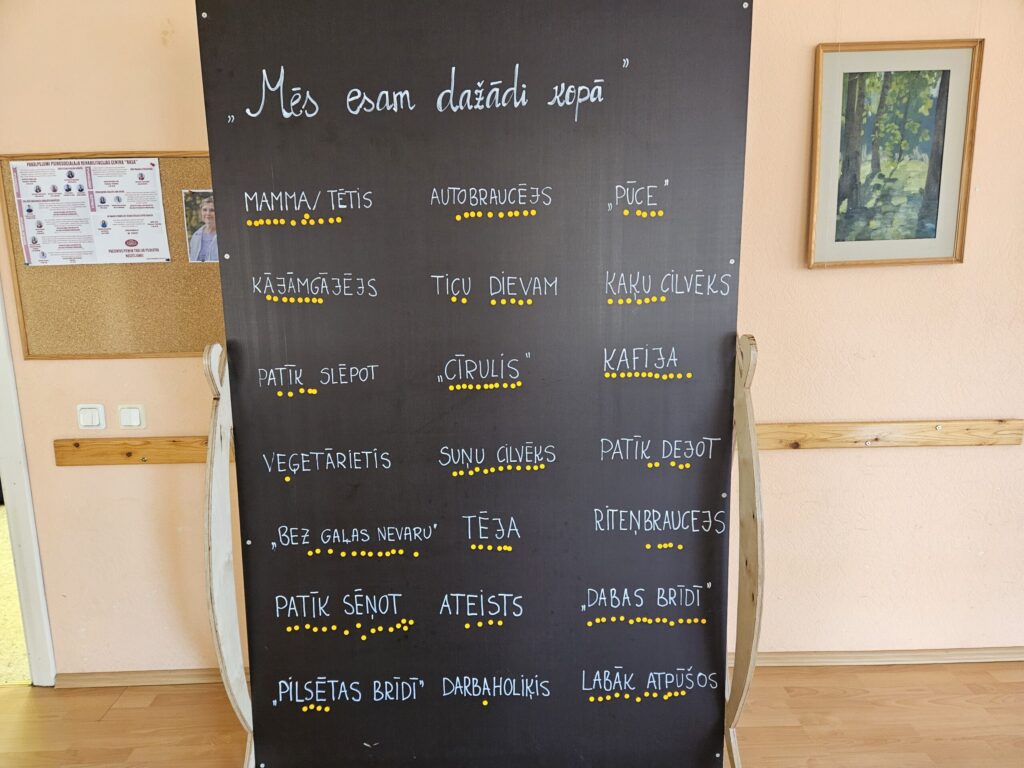 „Mēs esam dažādi kopā”
MAMMA/TĒTIS AUTOBRAUCĒJS „PŪCE”
KĀJĀMGĀJĒJS TICU DIEVAM KAĶU CILVĒKS
PATĪK SLĒPOT „CĪRULIS” KAFIJA
VEĢETĀRIETIS SUŅU CILVĒKS PATĪK DEJOT
„BEZ GAĻAS NEVARU” TĒJA RITEŅBRAUCEJS
PATĪK SĒŅOT ATEISTS „DABAS BRĪDĪ”
„PILSĒTAS BRĪDĪ” DARBAHOLIĶIS LABĀK ATPŪŠOS